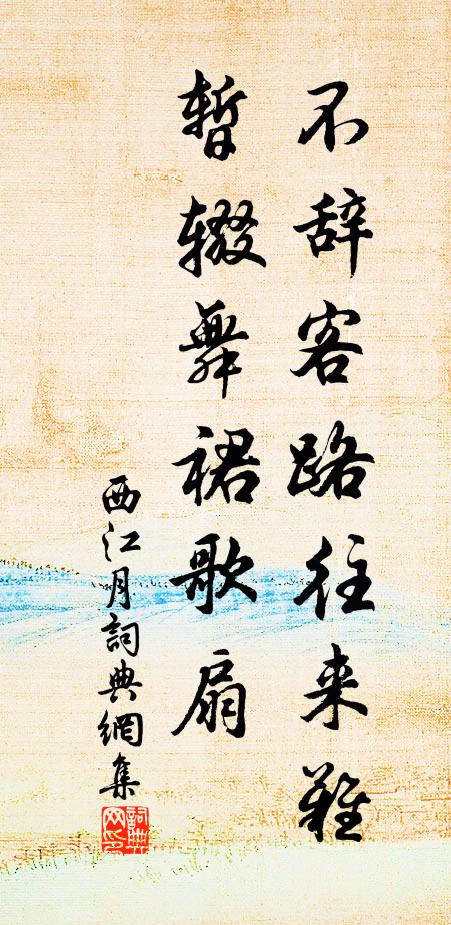 不辞客路往来难
暂辍舞裙歌扇
西江月詞典網集
詞典网印